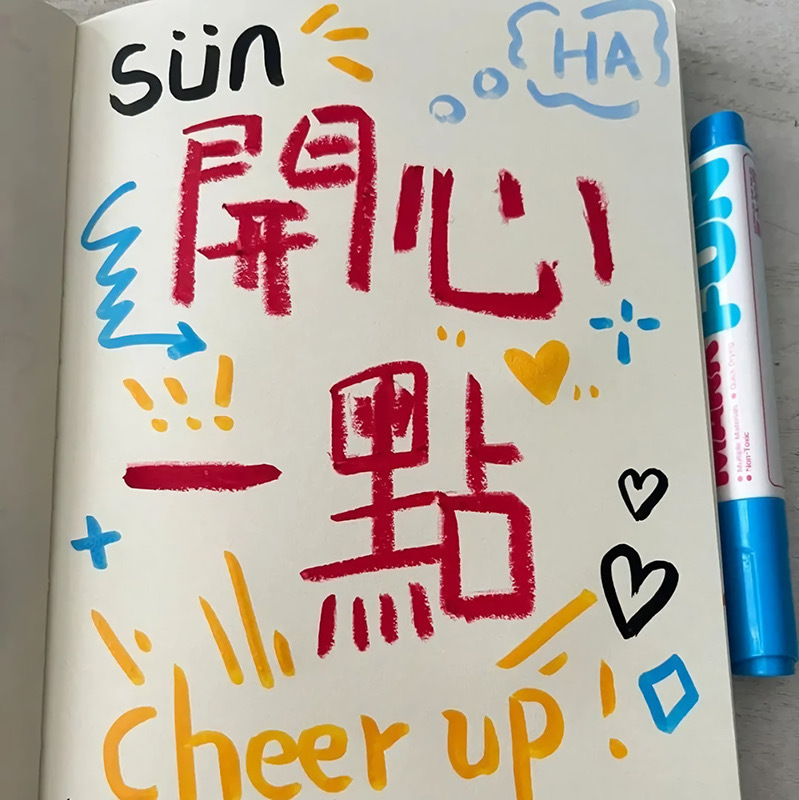 sün
HA
開心
一點
cheer up!
FUN
Multiple Materials
Quick Drying
Non-Toxic